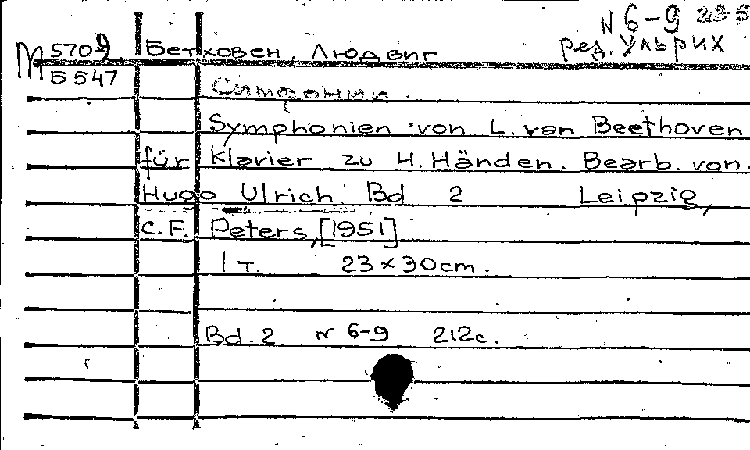 N 6-9
рез. Ульрих
М 5709 Бетховен, Людвиг
5547
Симфонии.
Symphonien von L. van Beethoven
für Klavier zu 4. Händen. Bearb. von
Hugo Ulrich. Bd 2 Leipzig,
C.F. Peters, [1951]
1 т. 23×30cm.
Bd. 2 N 6-9 212c.